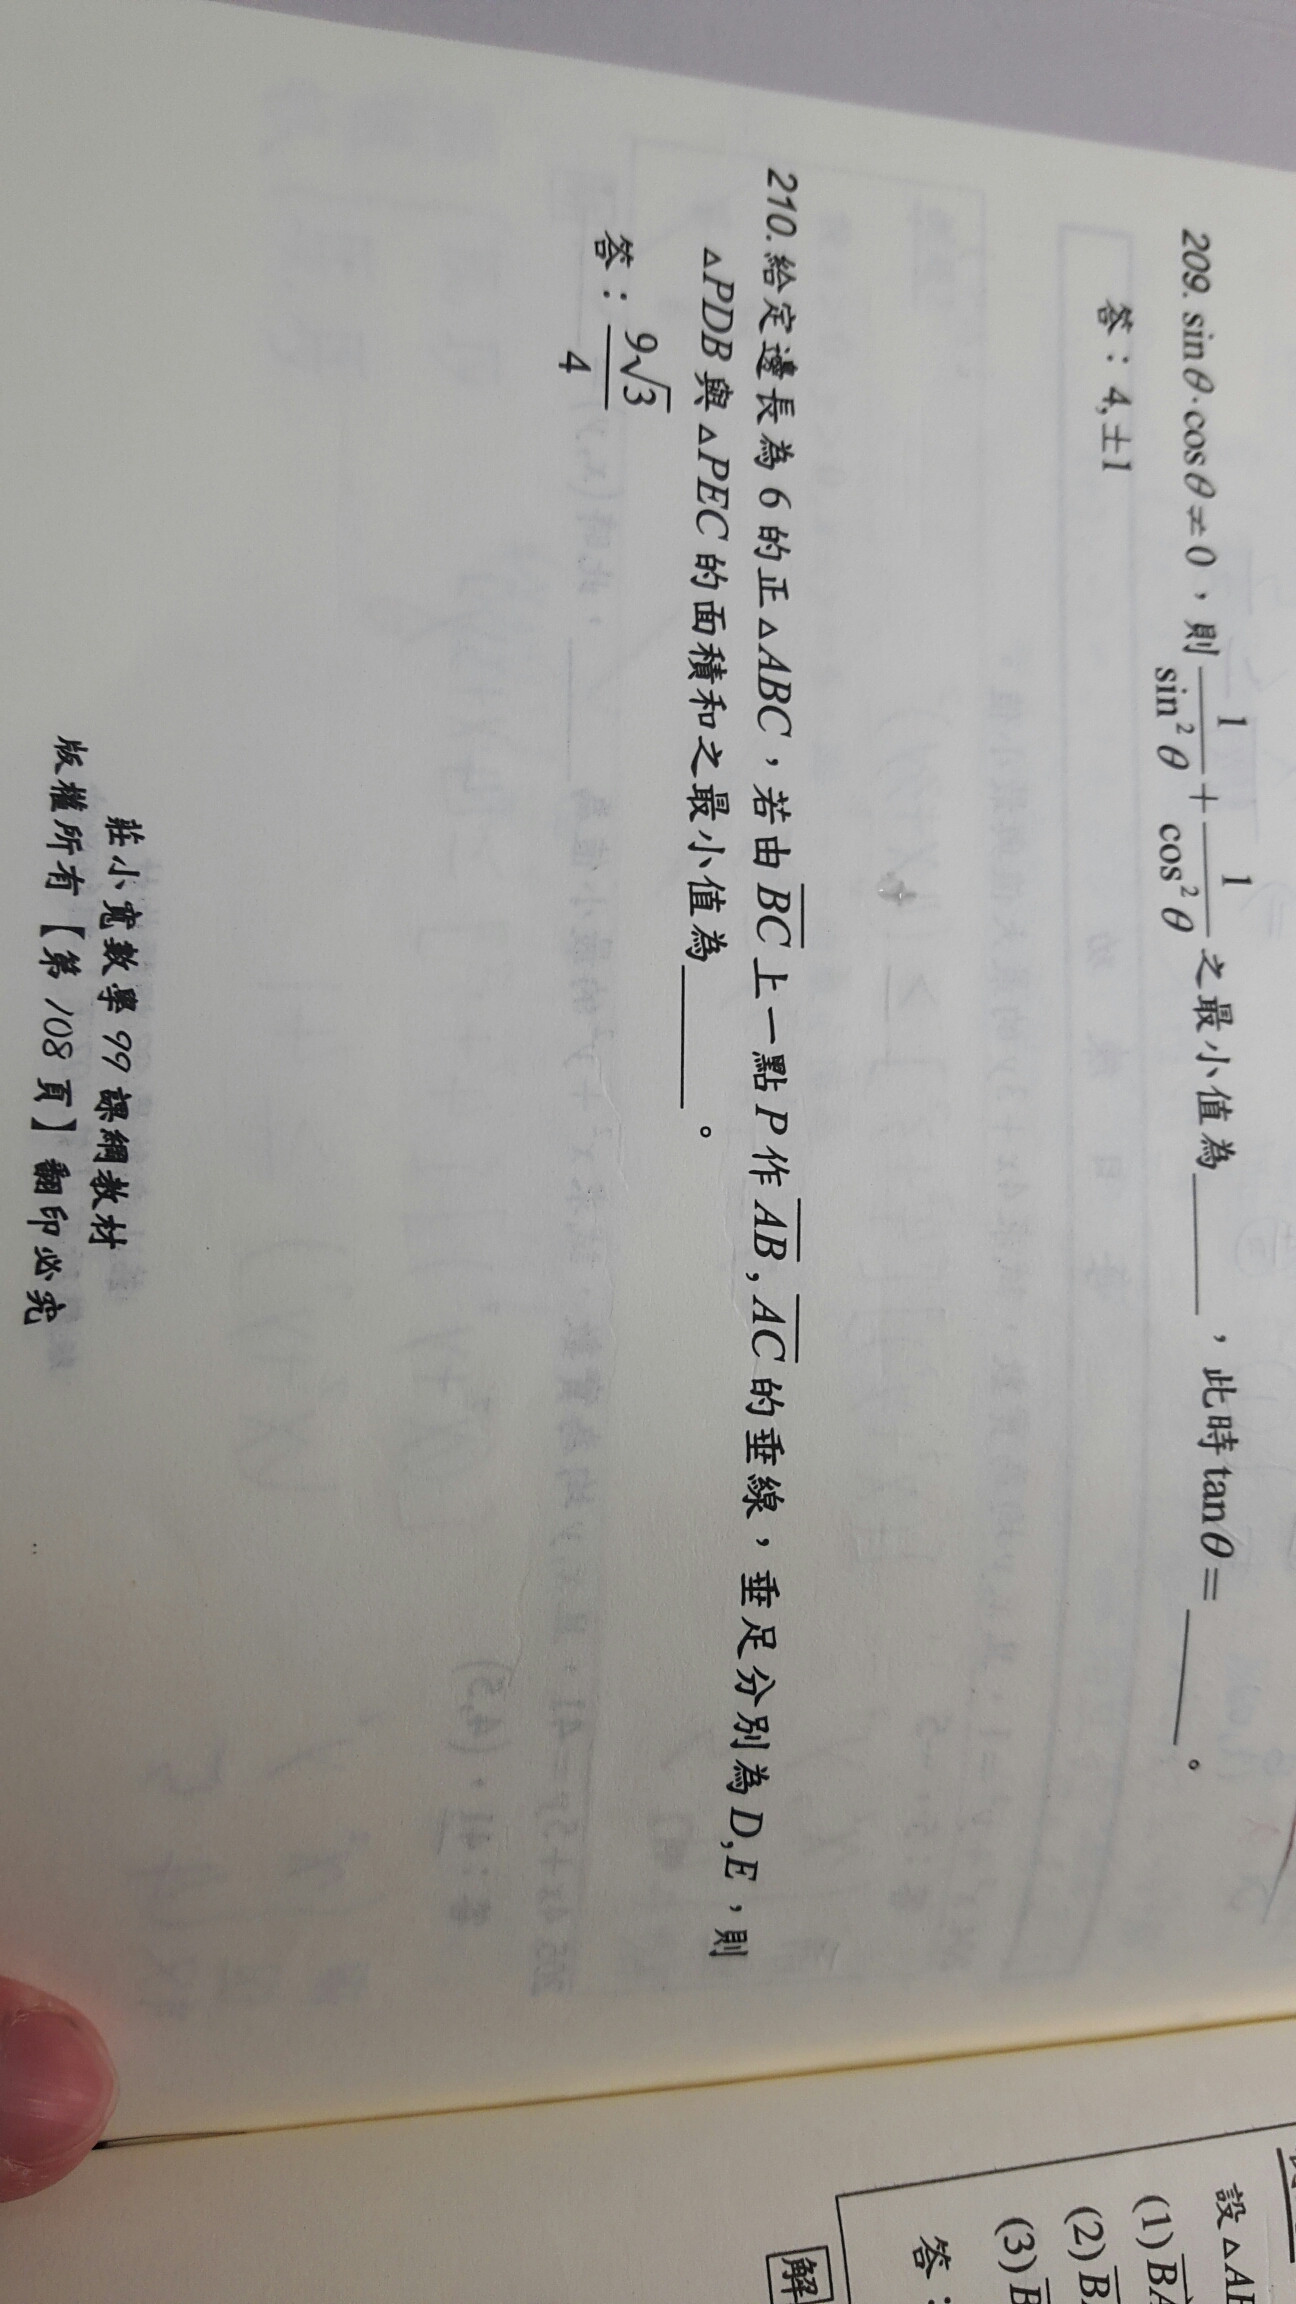 209. sinθ·cosθ≠0，則 1/sin²θ + 1/cos²θ 之最小值為______，此時tanθ=______。
答：4,±1
210. 給定邊長為6的正△ABC，若由BC上一點P作AB,AC的垂線，垂足分別為D,E，則
△PDB與△PEC的面積和之最小值為______。
答：9√3/4
莊小寬數學99課綱教材
版權所有【第108頁】翻印必究
設△AB
(1)BA
(2)B
(3)B
答：
解